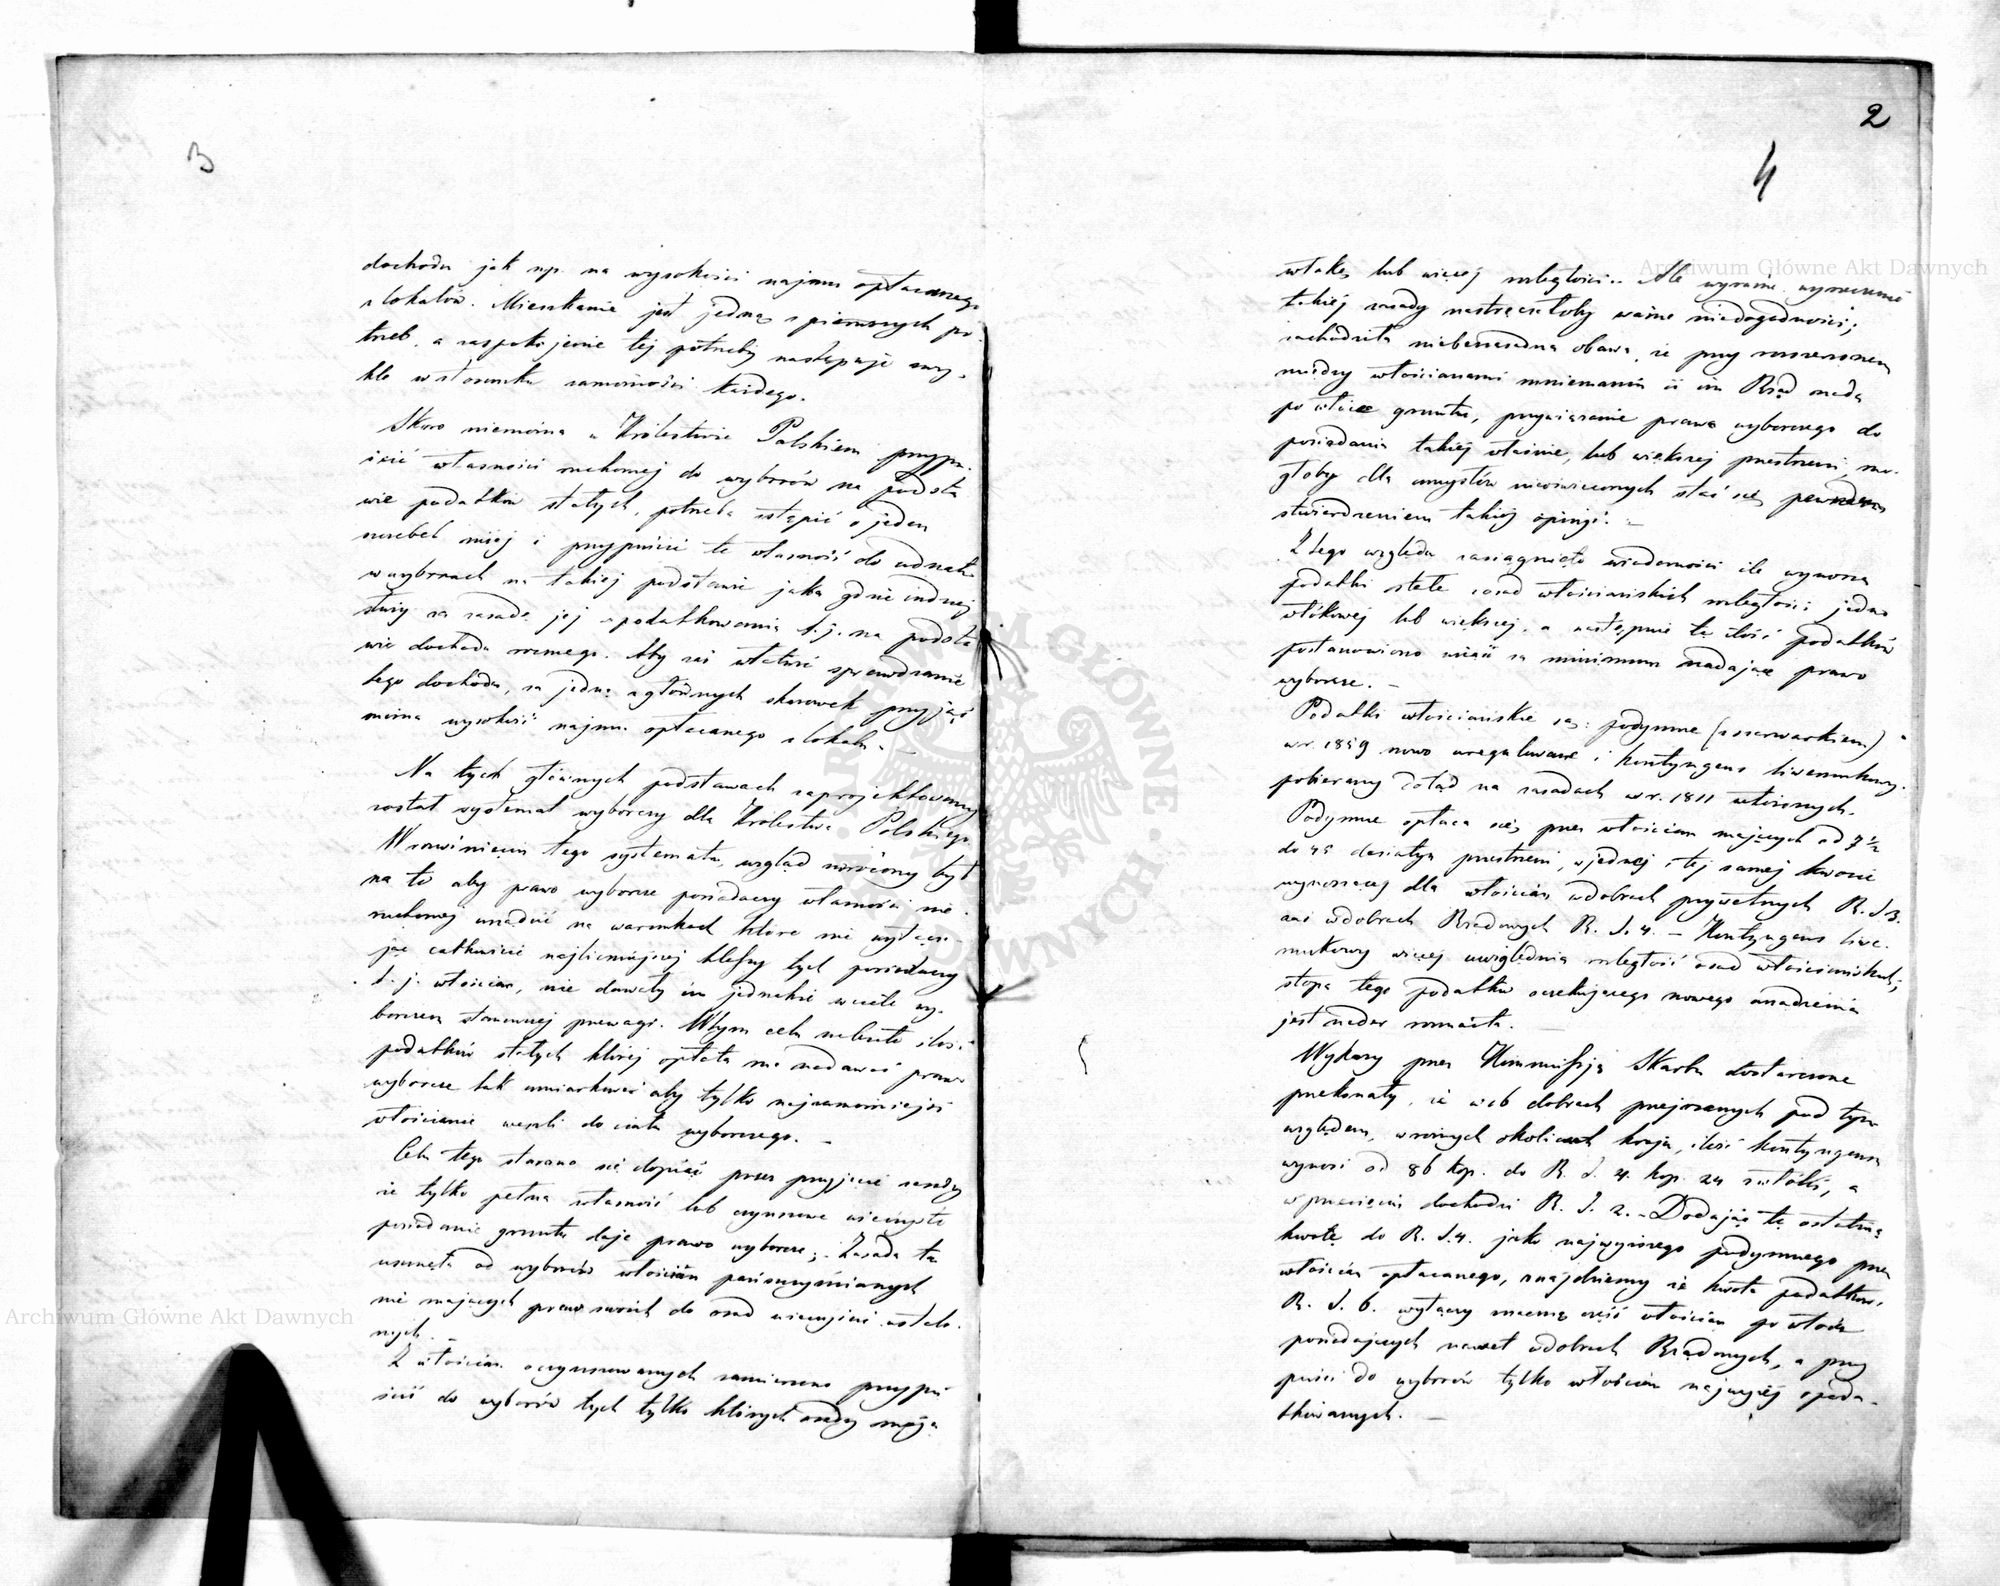 3
dochodu jak np. na wysokości najmu opłacanego
z lokalów. Mieszkanie jest jedną z pierwszych po-
trzeb, a zaspokojenie tej potrzeby następuje zwy-
kle w stosunku zamożności każdego.
Skoro niemożna w Królestwie Polskiem przypu-
ścić własności ruchomej do wyborów na podsta
wie podatków stałych, potrzeba zstąpić o jeden
szczebel niżej i przypuścić tę własność do udziału
w wyborach na takiej podstawie jaka gdzie indziej
służy za zasadę jej opodatkowania t. j. na podsta
wie dochodu rocznego. Aby zaś ułatwić sprawdzanie
tego dochodu, za jedną z głównych skazówek przyjąć
można wysokość najmu opłacanego z lokalu. —
Na tych głównych podstawach zaprojektowany
został systemat wyborczy dla Królestwa Polskiego.
W rozwinięciu tego systematu, wzgląd zwrócony był
na to aby prawo wyborcze posiadaczy własności nie-
ruchomej urządzić na warunkach które nie wyłącza-
jąc całkowicie najliczniejszej klassy tych posiadaczy
t. j. włościan, nie dawały im jednakże w ciele wy-
borczem stanowczej przewagi. W tym celu należało ilość
podatków stałych której opłata ma nadawać prawo
wyborcze tak umiarkować aby tylko najzamożniejsi
włościanie weszli do ciała wyborczego. —
Celu tego starano się dopiąć przez przyjęcie zasady
że tylko pełna własność lub czynszowe wieczyste
posiadanie gruntu daje prawo wyborcze; Zasada ta
usunęła od wyborów włościan pańszczyźnianych
nie mających praw swoich do osad wieczyście ustalo-
nych. —
Z włościan oczynszowanych zamierzono przypu-
ścić do wyborów tych tylko których osady mają
2
4
włókę lub więcej rozległości. Ale wyraźne wyrzeczenie
takiej zasady nastręczałoby ważne niedogodności;
zachodziła niebezzasadna obawa, że przy rozszerzonem
między włościanami mniemaniu iż im Rząd nada
po włóce gruntu, przywiązanie prawa wyborczego do
posiadania takiej właśnie, lub większej przestrzeni, mo-
głoby dla umysłów nieoświeconych stać się pewnem
stwierdzeniem takiej opinji. —
Z tego względu zasiągnięto wiadomości ile wynoszą
podatki stałe z osad włościańskich rozległości jedno
włókowej lub większej, a następnie tę ilość podatków
postanowiono wziąść za minimum nadające prawo
wyborcze. —
Podatki włościańskie są: podymne (z szarwarkiem)
w r. 1859 nowo uregulowane i kontyngens liwerunkowy
pobierany dotąd na zasadach w r. 1811 ułożonych.
Podymne opłaca się przez włościan mających od 7½
do 45 dziesiatyn przestrzeni, w jednej i tej samej kwocie
wynoszącej dla włościan w dobrach prywatnych R. S. 3.
zaś w dobrach Rządowych R. S. 4. — Kontyngens liwe-
runkowy więcej uwzględnia rozległość osad włościańskich;
stopa tego podatku oczekującego nowego urządzenia
jest nader rozmaita. —
Wykazy przez Kommissją Skarbu dostarczone
przekonały, że w 26 dobrach przejrzanych pod tym
względem, w różnych okolicach kraju, ilość kontyngensu
wynosi od 86 kop. do R. S. 4. kop. 24 z włóki, a
w przecięciu dochodzi R. S. 2. — Dodając tę ostatnią
kwotę do R. S. 4. jako najwyższego podymnego przez
włościan opłacanego, znajdziemy że kwota podatków
R. S. 6. wyłączy znaczną część włościan po włóce
posiadających nawet w dobrach Rządowych, a przy
puści do wyborów tylko włościan najwyżej opoda-
tkowanych. —
Archiwum Główne Akt Dawnych
Archiwum Główne Akt Dawnych